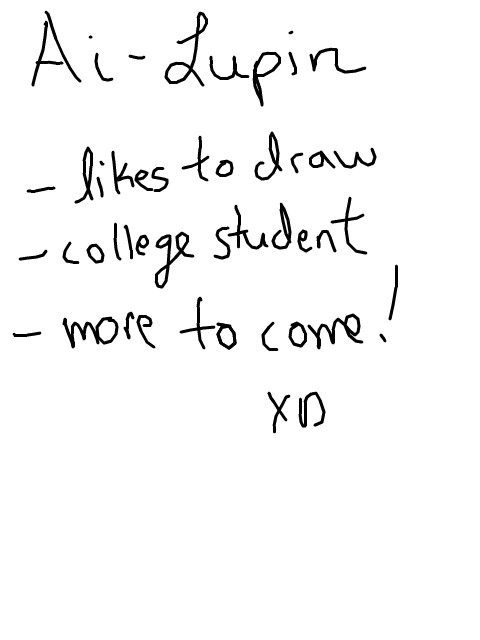 Ai-Lupin
- likes to draw
- college student
- more to come!
XD